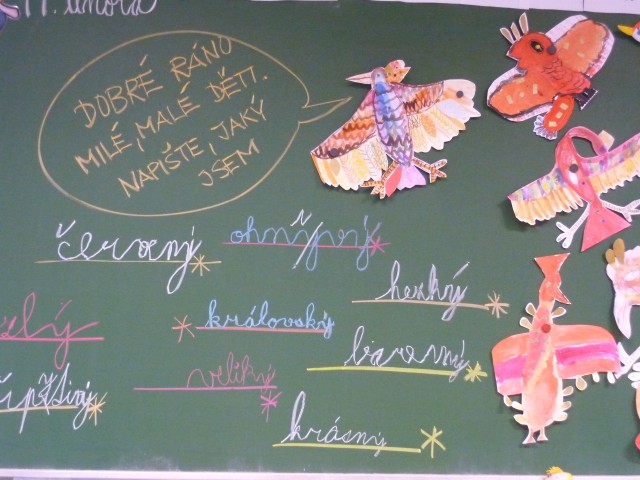 února
DOBRÉ RÁNO
MILÉ, MALÉ DĚTI.
NAPIŠTE, JAKÝ
JSEM
červený
hezký
zlý
královský
barevný
veliký
krásný